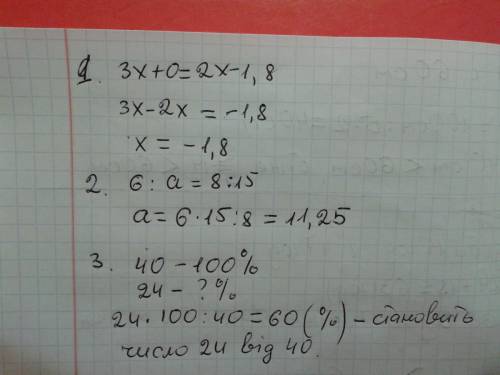 1. 3x+0=2x-1,8
3x-2x = -1,8
x = -1,8
2. 6 : a = 8:15
a = 6·15:8 = 11,25
3. 40 - 100%
24 - ? %
24·100:40=60(%) - становить
число 24 від 40.